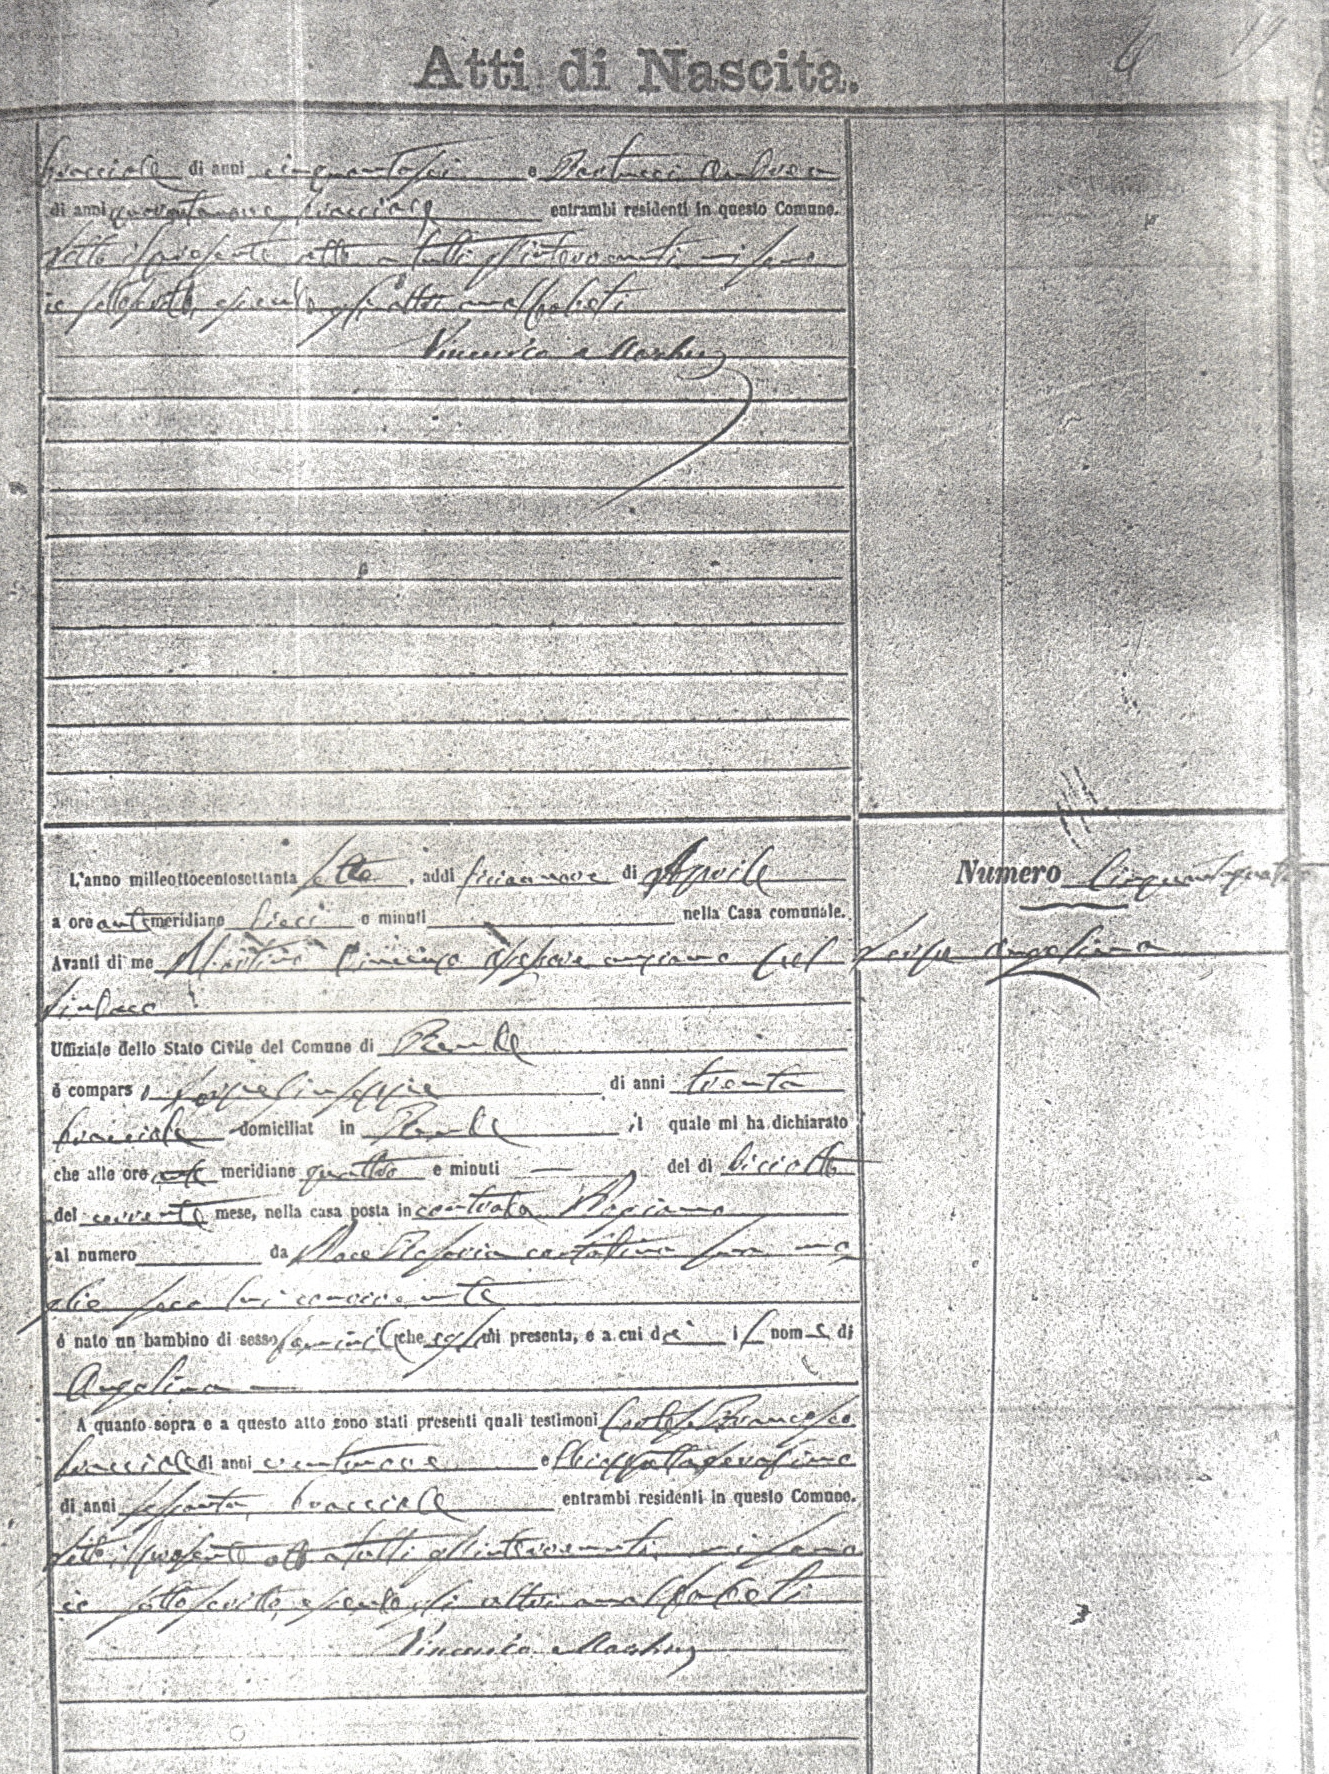 Atti di Nascita.
bracciale di anni cinquantasei e Bertucci Andrea
di anni quarantanove, bracciale entrambi residenti in questo Comune.
Letto il presente atto a tutti gl'intervenuti, mi sono
io sottoscritto, essendo gli altri analfabeti
Vincenzo Martino
L'anno milleottocentosettanta sette, addì diciannove di Aprile
a ore antimeridiane dieci e minuti nella Casa comunale.
Avanti di me Martino Vincenzo Assessore anziano pel
Sindaco
Uffiziale dello Stato Civile del Comune di Rende
è comparso Giuseppe di anni trenta
bracciale domiciliat in Rende, il quale mi ha dichiarato
che alle ore meridiane quattro e minuti del dì diciotto
del corrente mese, nella casa posta in contrada
al numero da sua mo
glie seco lui convivente
è nato un bambino di sesso feminile che egli mi presenta, e a cui dà il nome di
Angelina
A quanto sopra e a questo atto sono stati presenti quali testimoni Francesco
bracciale di anni ventinove e Chiappetta Serafino
di anni sessanta, bracciale entrambi residenti in questo Comune.
Letto il presente atto a tutti gl'intervenuti, mi sono
io sottoscritto, essendo gli altri analfabeti
Vincenzo Martino
Numero Cinquantaquattro
Angelina